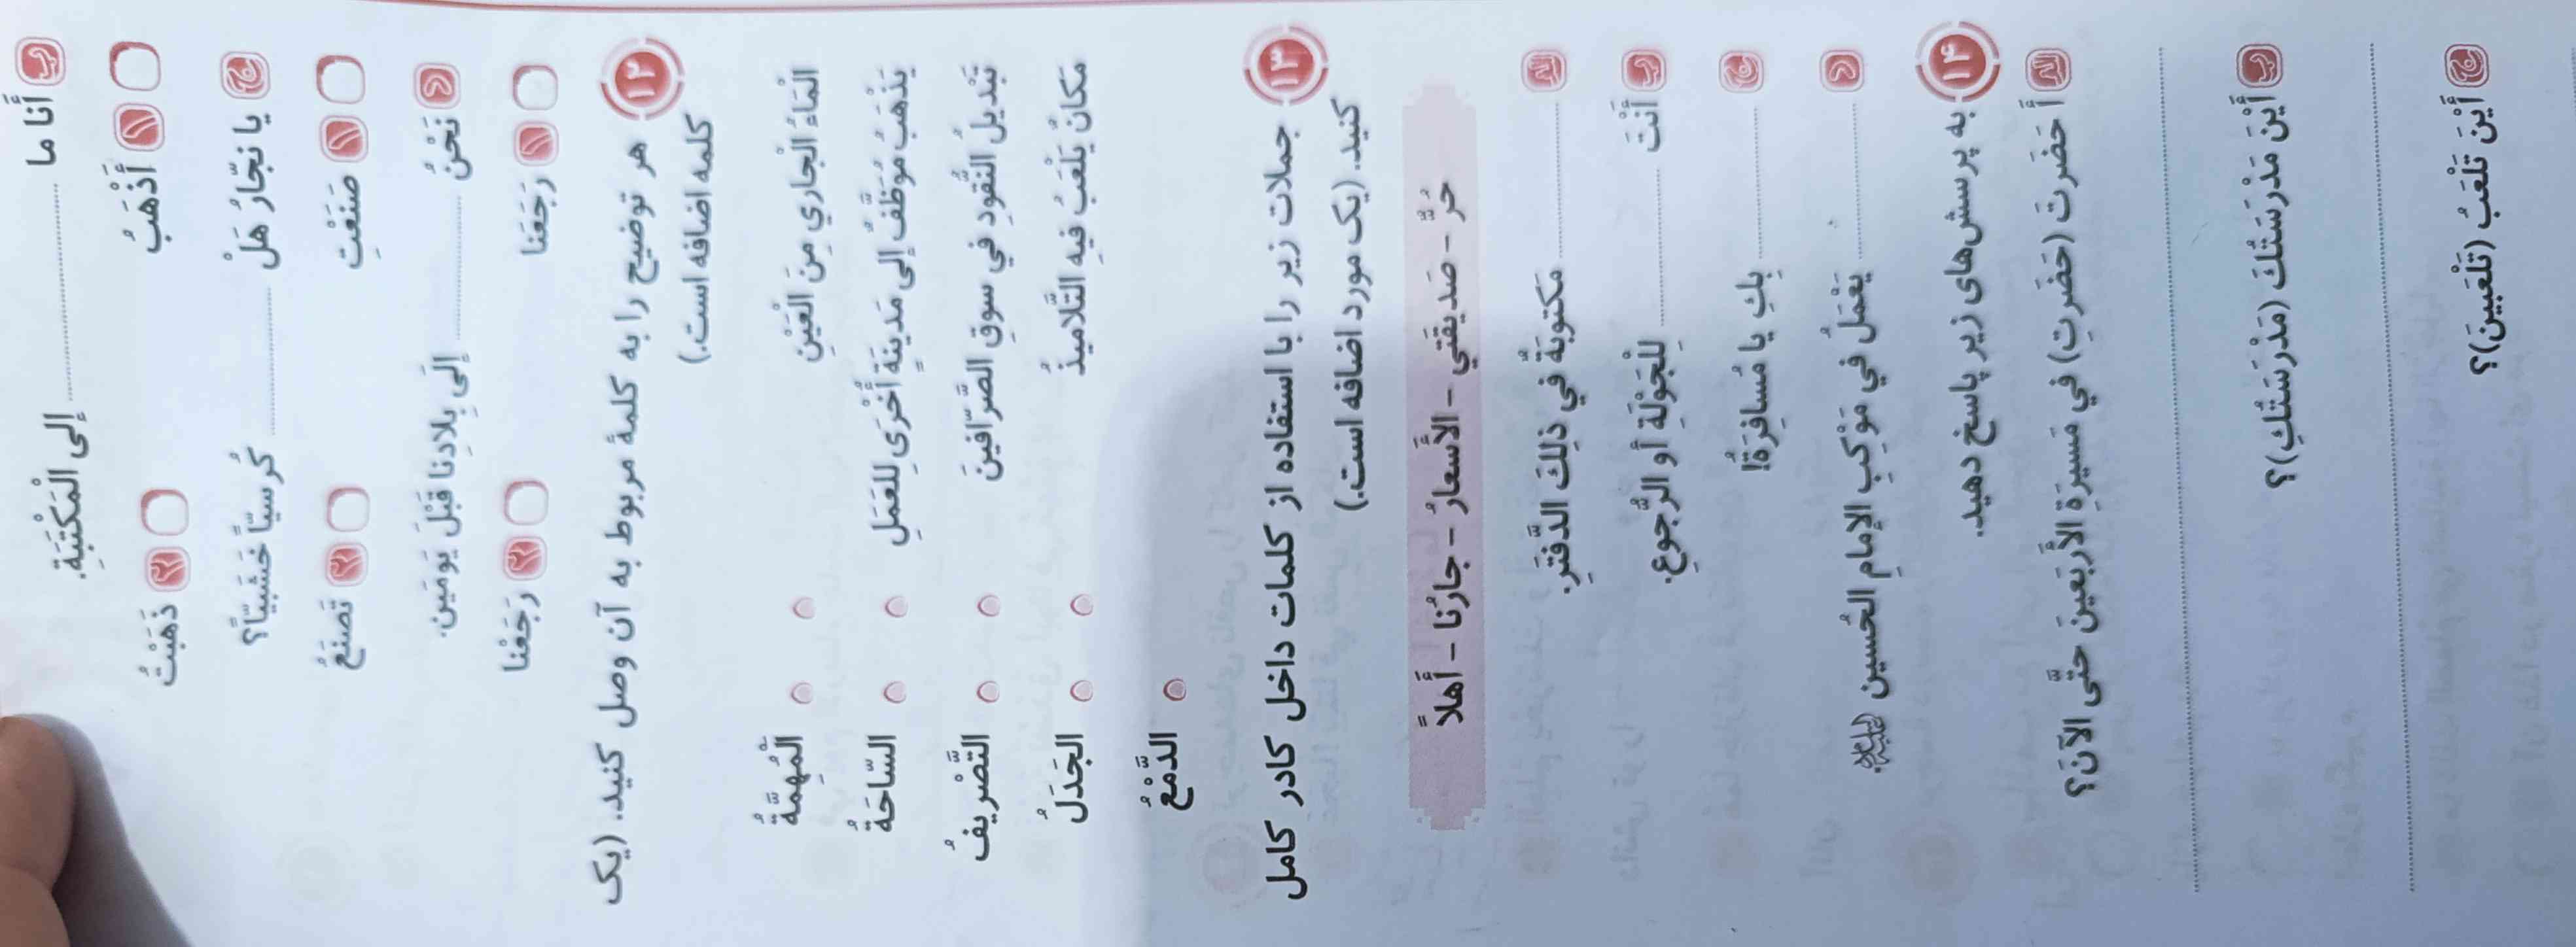 ب أَنا ما .......... إلی الْمَکْتَبَةِ.
۱ أَذْهَبُ ۲ ذَهَبْتُ
ج يا نَجّارُ هَلْ .......... کُرسيّاً خَشَبيّاً؟
۱ صَنَعْتِ ۲ تَصنَعُ
د نَحْنُ .......... إلَی بِلادِنا قَبْلَ يَومَينِ.
۱ رَجَعَنا ۲ رَجَعْنا
۱۲ هر توضیح را به کلمهٔ مربوط به آن وصل کنید. (یک
کلمه اضافه است.)
الْماءُ الْجاري مِنَ الْعَيْنِ الْمُهِمَّةُ
يَذْهَبُ مُوَظَّفٌ إلی مَدينَةٍ أُخْرَی لِلعَمَلِ السّاحَةُ
تَبْديلُ النُّقودِ في سوقِ الصَّرّافينَ التَّصْريفُ
مَکانٌ يَلْعَبُ فيهِ التَّلاميذُ الجَدَلُ
الدَّمْعُ
۱۳ جملات زیر را با استفاده از کلمات داخل کادر کامل
کنید. (یک مورد اضافه است.)
حُرٌّ - صَديقَتي - الأَسعارُ - جارُنا - أَهلاً
الف .......... مَکتوبَةٌ في ذلِكَ الدَّفتَرِ.
ب أَنْتَ .......... لِلْجَوْلَةِ أو الرُّجوعِ.
ج .......... بِكِ يا مُسافِرَةُ!
د .......... يَعْمَلُ في مَوْکِبِ الإمامِ الحُسينِ
۱۴ به پرسش‌های زیر پاسخ دهید.
الف أَ حَضَرتَ (حَضَرتِ) في مَسيرَةِ الأَربَعينَ حَتَّی الآنَ؟
ب أَيْنَ مَدْرَسَتُكَ (مَدْرَسَتُكِ)؟
ج أَيْنَ تَلْعَبُ (تَلْعَبينَ)؟